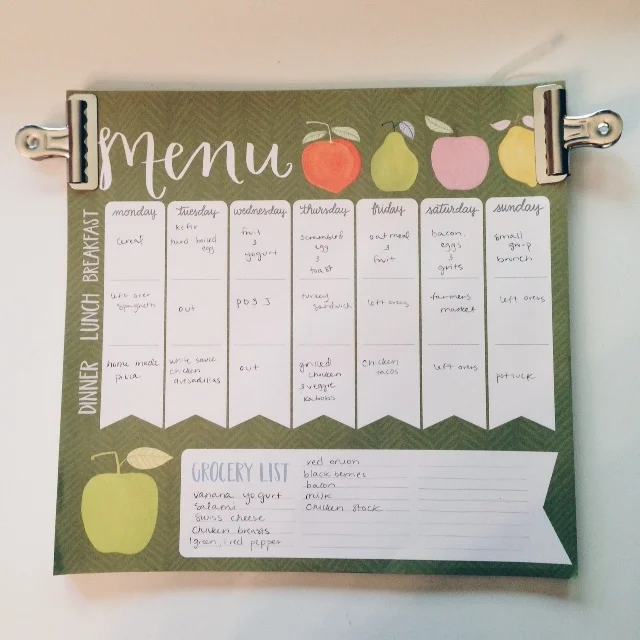 menu
monday tuesday wednesday thursday friday saturday sunday
BREAKFAST
cereal
kefir
hard boiled
egg
fruit
&
yogurt
scrambled
egg
&
toast
oatmeal
&
fruit
bacon,
eggs
&
grits
small
group
brunch
LUNCH
left over
spaghetti
out
PB & J
turkey
sandwich
left overs
farmers
market
left overs
DINNER
home made
pizza
white sauce
chicken
quesadillas
out
grilled
chicken
& veggie
kabobs
chicken
tacos
left overs
potluck
GROCERY LIST
vanana yogurt
salami
swiss cheese
chicken breasts
1 green, 1 red pepper
red onion
blackberries
bacon
milk
chicken stock